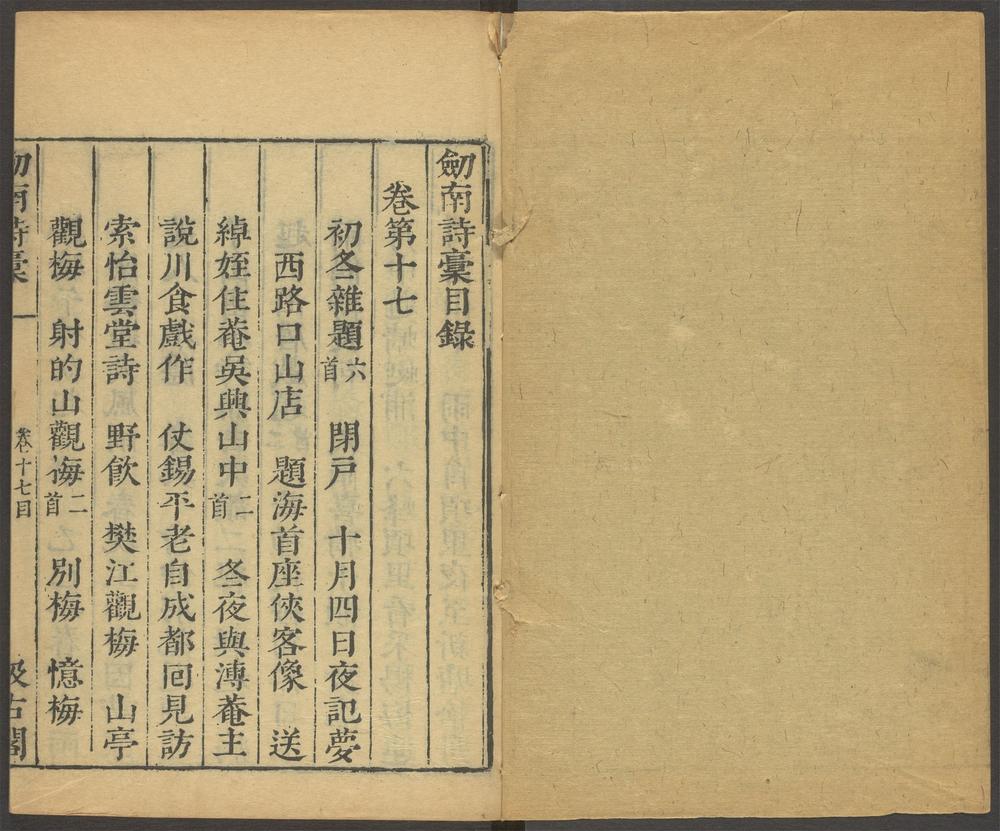 劒南詩稾目錄
卷第十七
初冬雜題六首　閉戸　十月四日夜記夢
西路口山店　題海首座俠客像　送
綽姪住菴吳興山中二首　冬夜與溥菴主
說川食戲作　仗錫平老自成都囘見訪
索怡雲堂詩　野飲　樊江觀梅　山亭
觀梅　射的山觀梅二首　別梅　憶梅
劒南詩稾　卷十七目　一　汲古閣